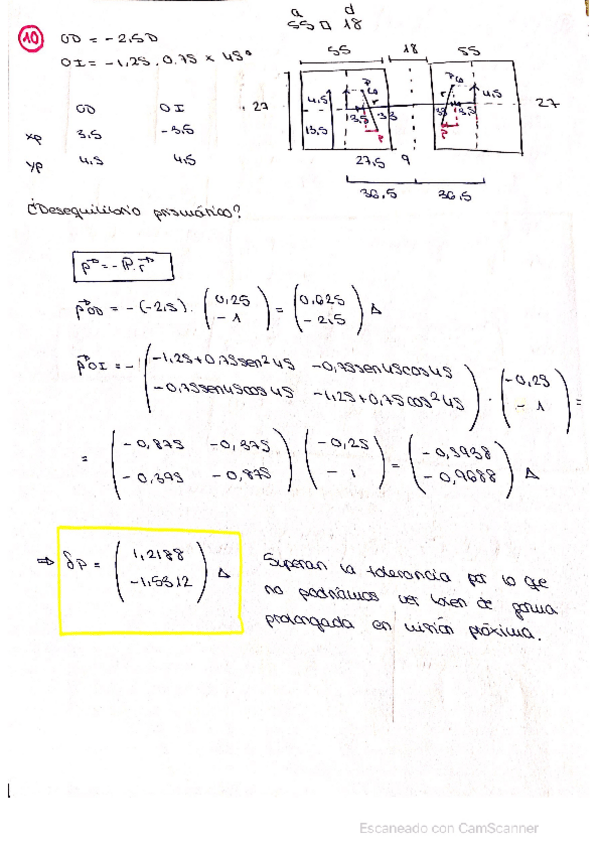 10 OD = -2,5D
OI = -1,25 . 0,75 x 45º
a d
55 □ 18
55 18 55
OD OI
xp 3,5 -3,5
yp 4,5 4,5
27
4,5
13,5
3,5
33
27,5 9
36,5 36,5
33
3,5
4,5
27
¿Desequilibrio prismático?
p = -P.r
pOD = -(-2,5) . ( 0,25 -1 ) = ( 0,625 -2,5 ) Δ
pOI = - ( -1,25+0,75sen²45 -0,75sen45cos45
-0,75sen45cos45 -1,25+0,75cos²45 ) . ( -0,25 -1 ) =
= ( -0,875 -0,375
-0,375 -0,875 ) ( -0,25 -1 ) = ( -0,5938 -0,9688 ) Δ
⇒ δp = ( 1,2188 -1,5312 ) Δ
Superan la tolerancia por lo que
no podríamos ver bien de forma
prolongada en visión próxima.
Escaneado con CamScanner